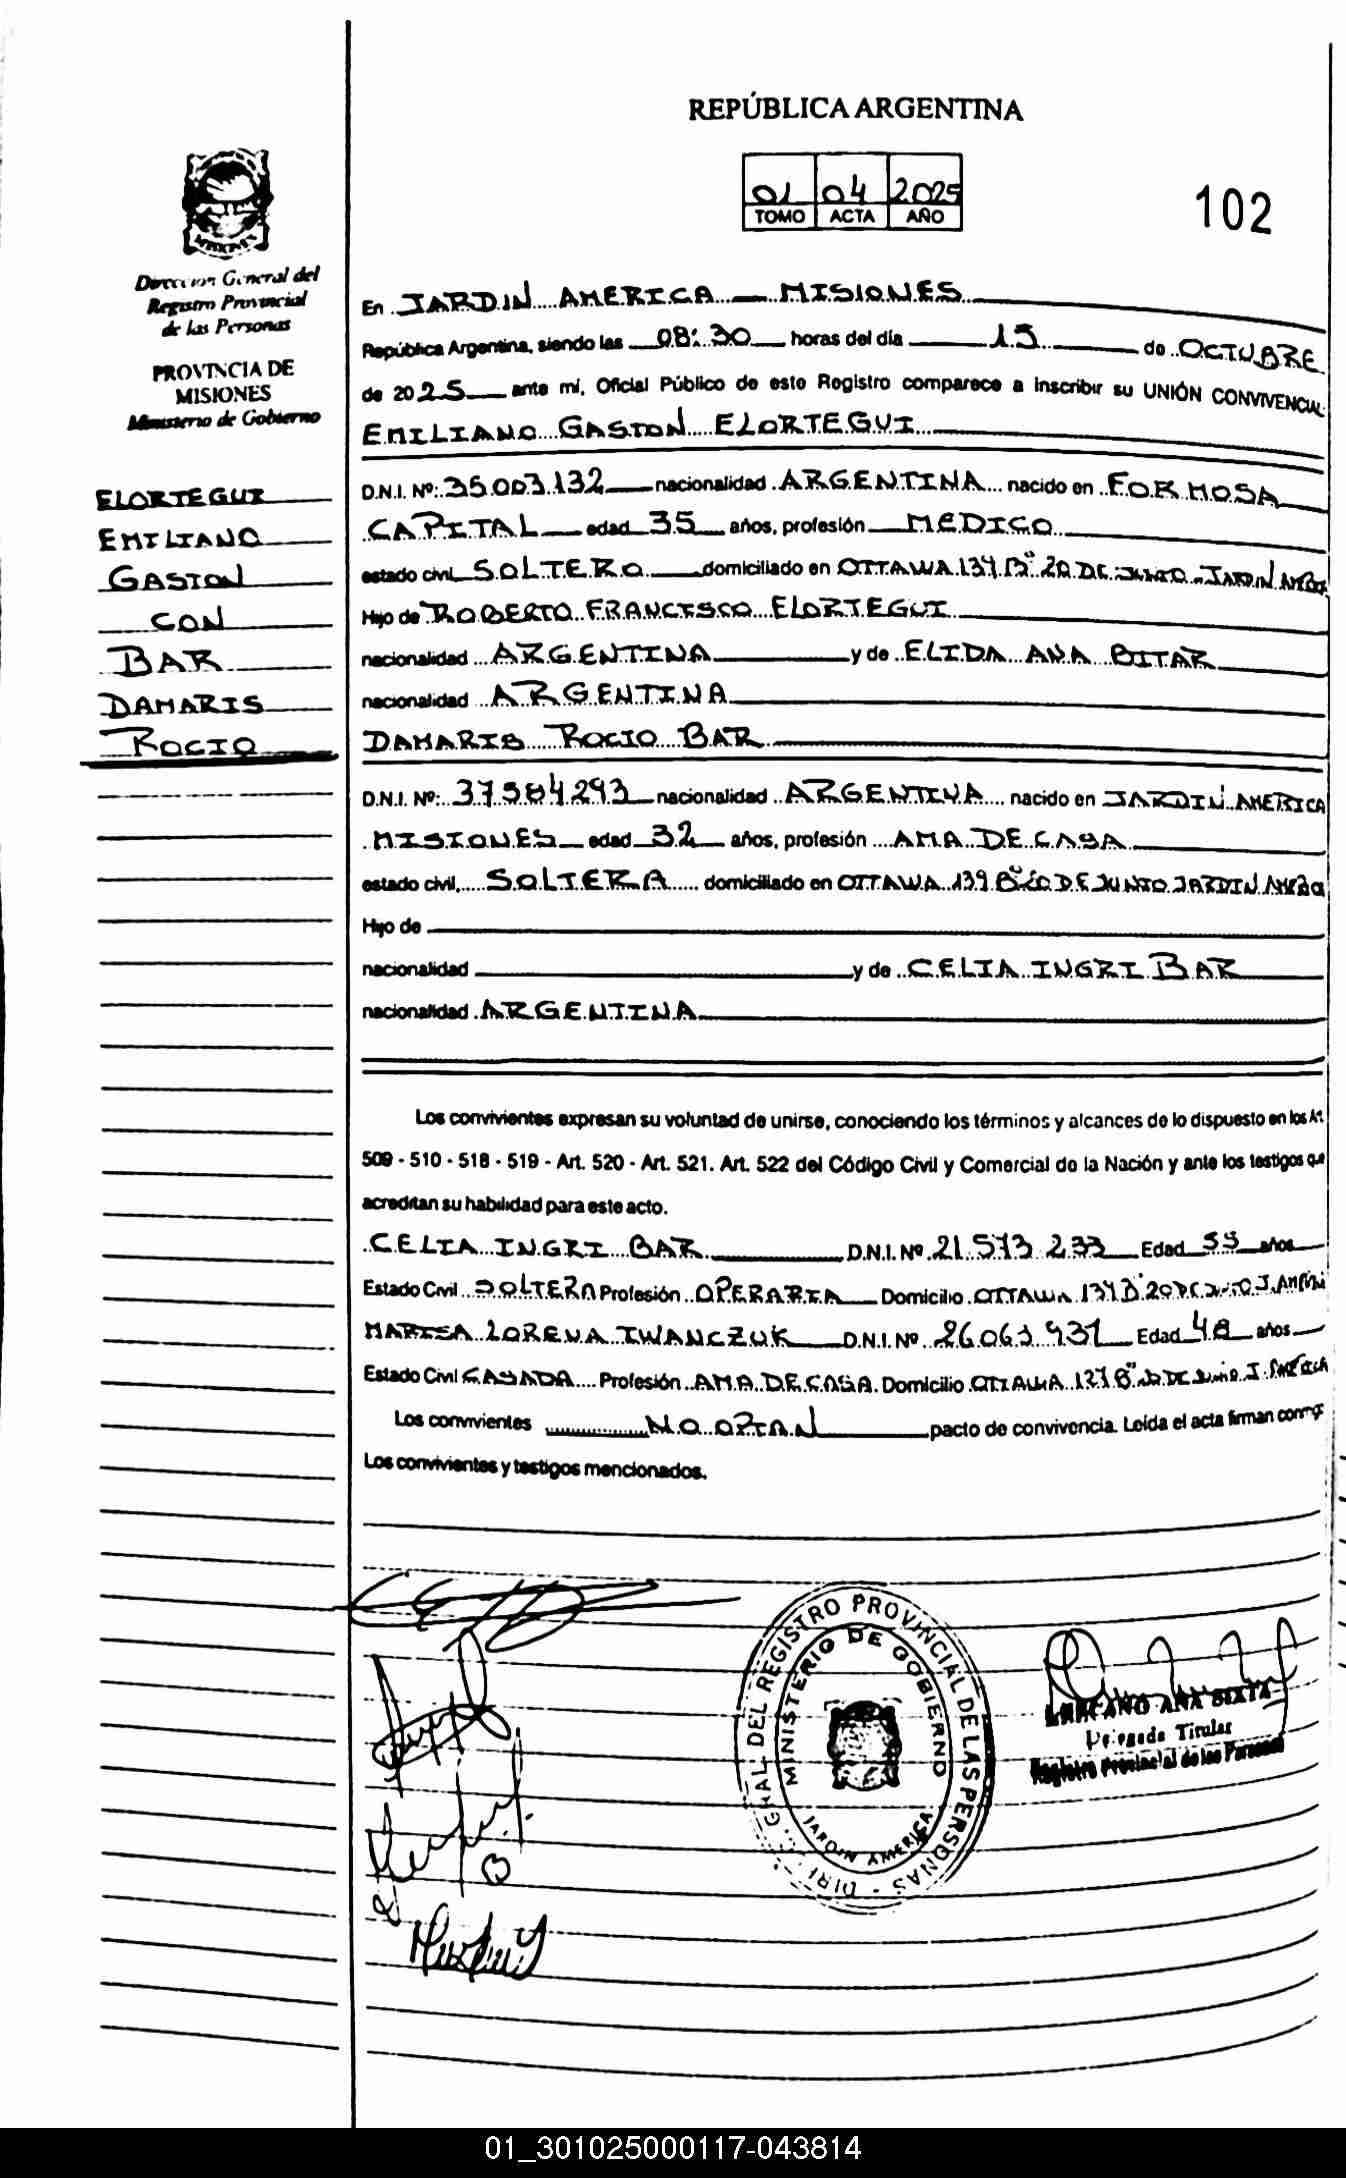 REPÚBLICA ARGENTINA
01 04 2025
TOMO ACTA AÑO
102
Direccion General del
Registro Provincial
de las Personas
PROVINCIA DE
MISIONES
Ministerio de Gobierno
ELORTEGUI
EMILIANO
GASTON
CON
BAR
DAMARIS
ROCIO
En JARDIN AMERICA - MISIONES
República Argentina, siendo las 08:30 horas del día 15 de OCTUBRE
de 2025 ante mí, Oficial Público de este Registro comparece a inscribir su UNIÓN CONVIVENCIAL:
EMILIANO GASTON ELORTEGUI
D.N.I. Nº: 35.003.132 nacionalidad ARGENTINA nacido en FORMOSA
CAPITAL edad 35 años, profesión MEDICO
estado civil SOLTERO domiciliado en OTTAWA 134 Bº 20 DE JUNIO - JARDIN
Hijo de ROBERTO FRANCISCO ELORTEGUI
nacionalidad ARGENTINA y de ELIDA ANA BITAR
nacionalidad ARGENTINA
DAMARIS ROCIO BAR
D.N.I. Nº: 37584293 nacionalidad ARGENTINA nacido en JARDIN AMERICA
MISIONES edad 32 años, profesión AMA DE CASA
estado civil, SOLTERA domiciliado en OTTAWA 139 Bº 20 DE JUNIO JARDIN
Hijo de
nacionalidad y de CELIA INGRI BAR
nacionalidad ARGENTINA
Los convivientes expresan su voluntad de unirse, conociendo los términos y alcances de lo dispuesto en los Art.
509 - 510 - 518 - 519 - Art. 520 - Art. 521. Art. 522 del Código Civil y Comercial de la Nación y ante los testigos que
acreditan su habilidad para este acto.
CELIA INGRI BAR D.N.I. Nº 21.573.233 Edad 55 años
Estado Civil SOLTERA Profesión OPERARIA Domicilio OTTAWA 134 Bº 20 DE JUNIO J.
MARISA LORENA IWANCZUK D.N.I. Nº 26.063.931 Edad 48 años
Estado Civil CASADA Profesión AMA DE CASA. Domicilio OTTAWA Bº 20 DE JUNIO J. AMERICA
Los convivientes NO OPTAN pacto de convivencia. Leída el acta firman
Los convivientes y testigos mencionados.
DIR. GRAL. DEL REGISTRO PROVINCIAL DE LAS PERSONAS
MINISTERIO DE GOBIERNO
JARDIN AMERICA
ANA SIXTA
Delegada Titular
Registro Provincial de las Personas
01_301025000117-043814